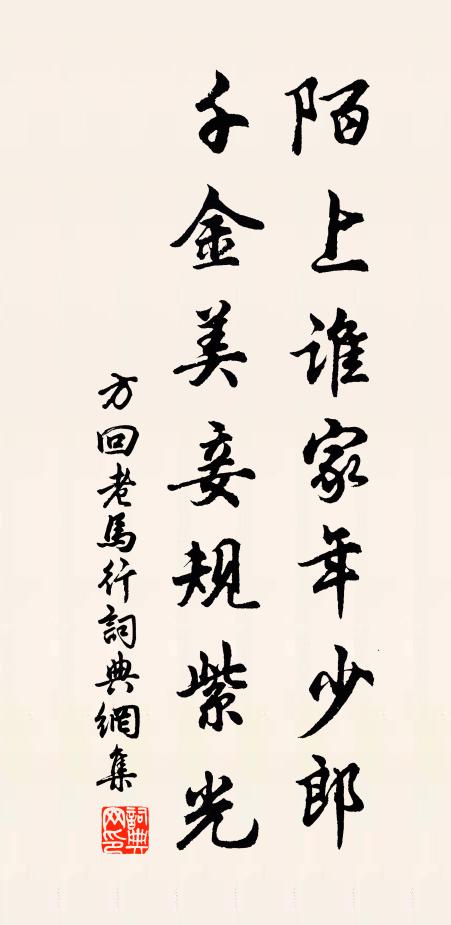 陌上誰家年少郎
千金美妾規紫光
方回老馬行詞典網集
詞典網印